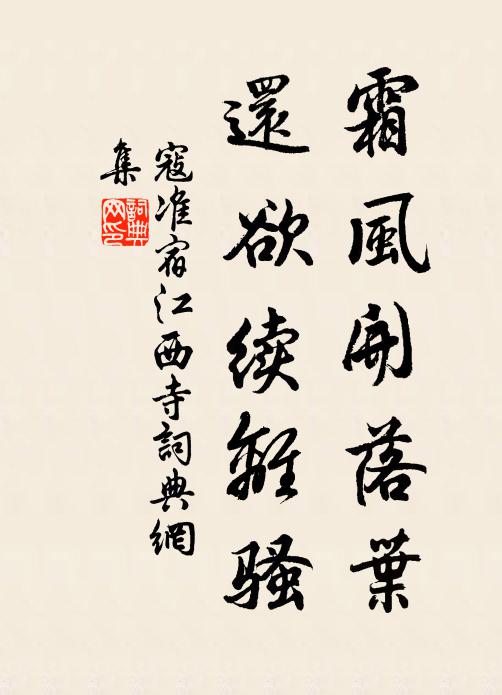 霜風開落葉
還欲續離騷
寇准宿江西寺詞典網
集
詞典
网印